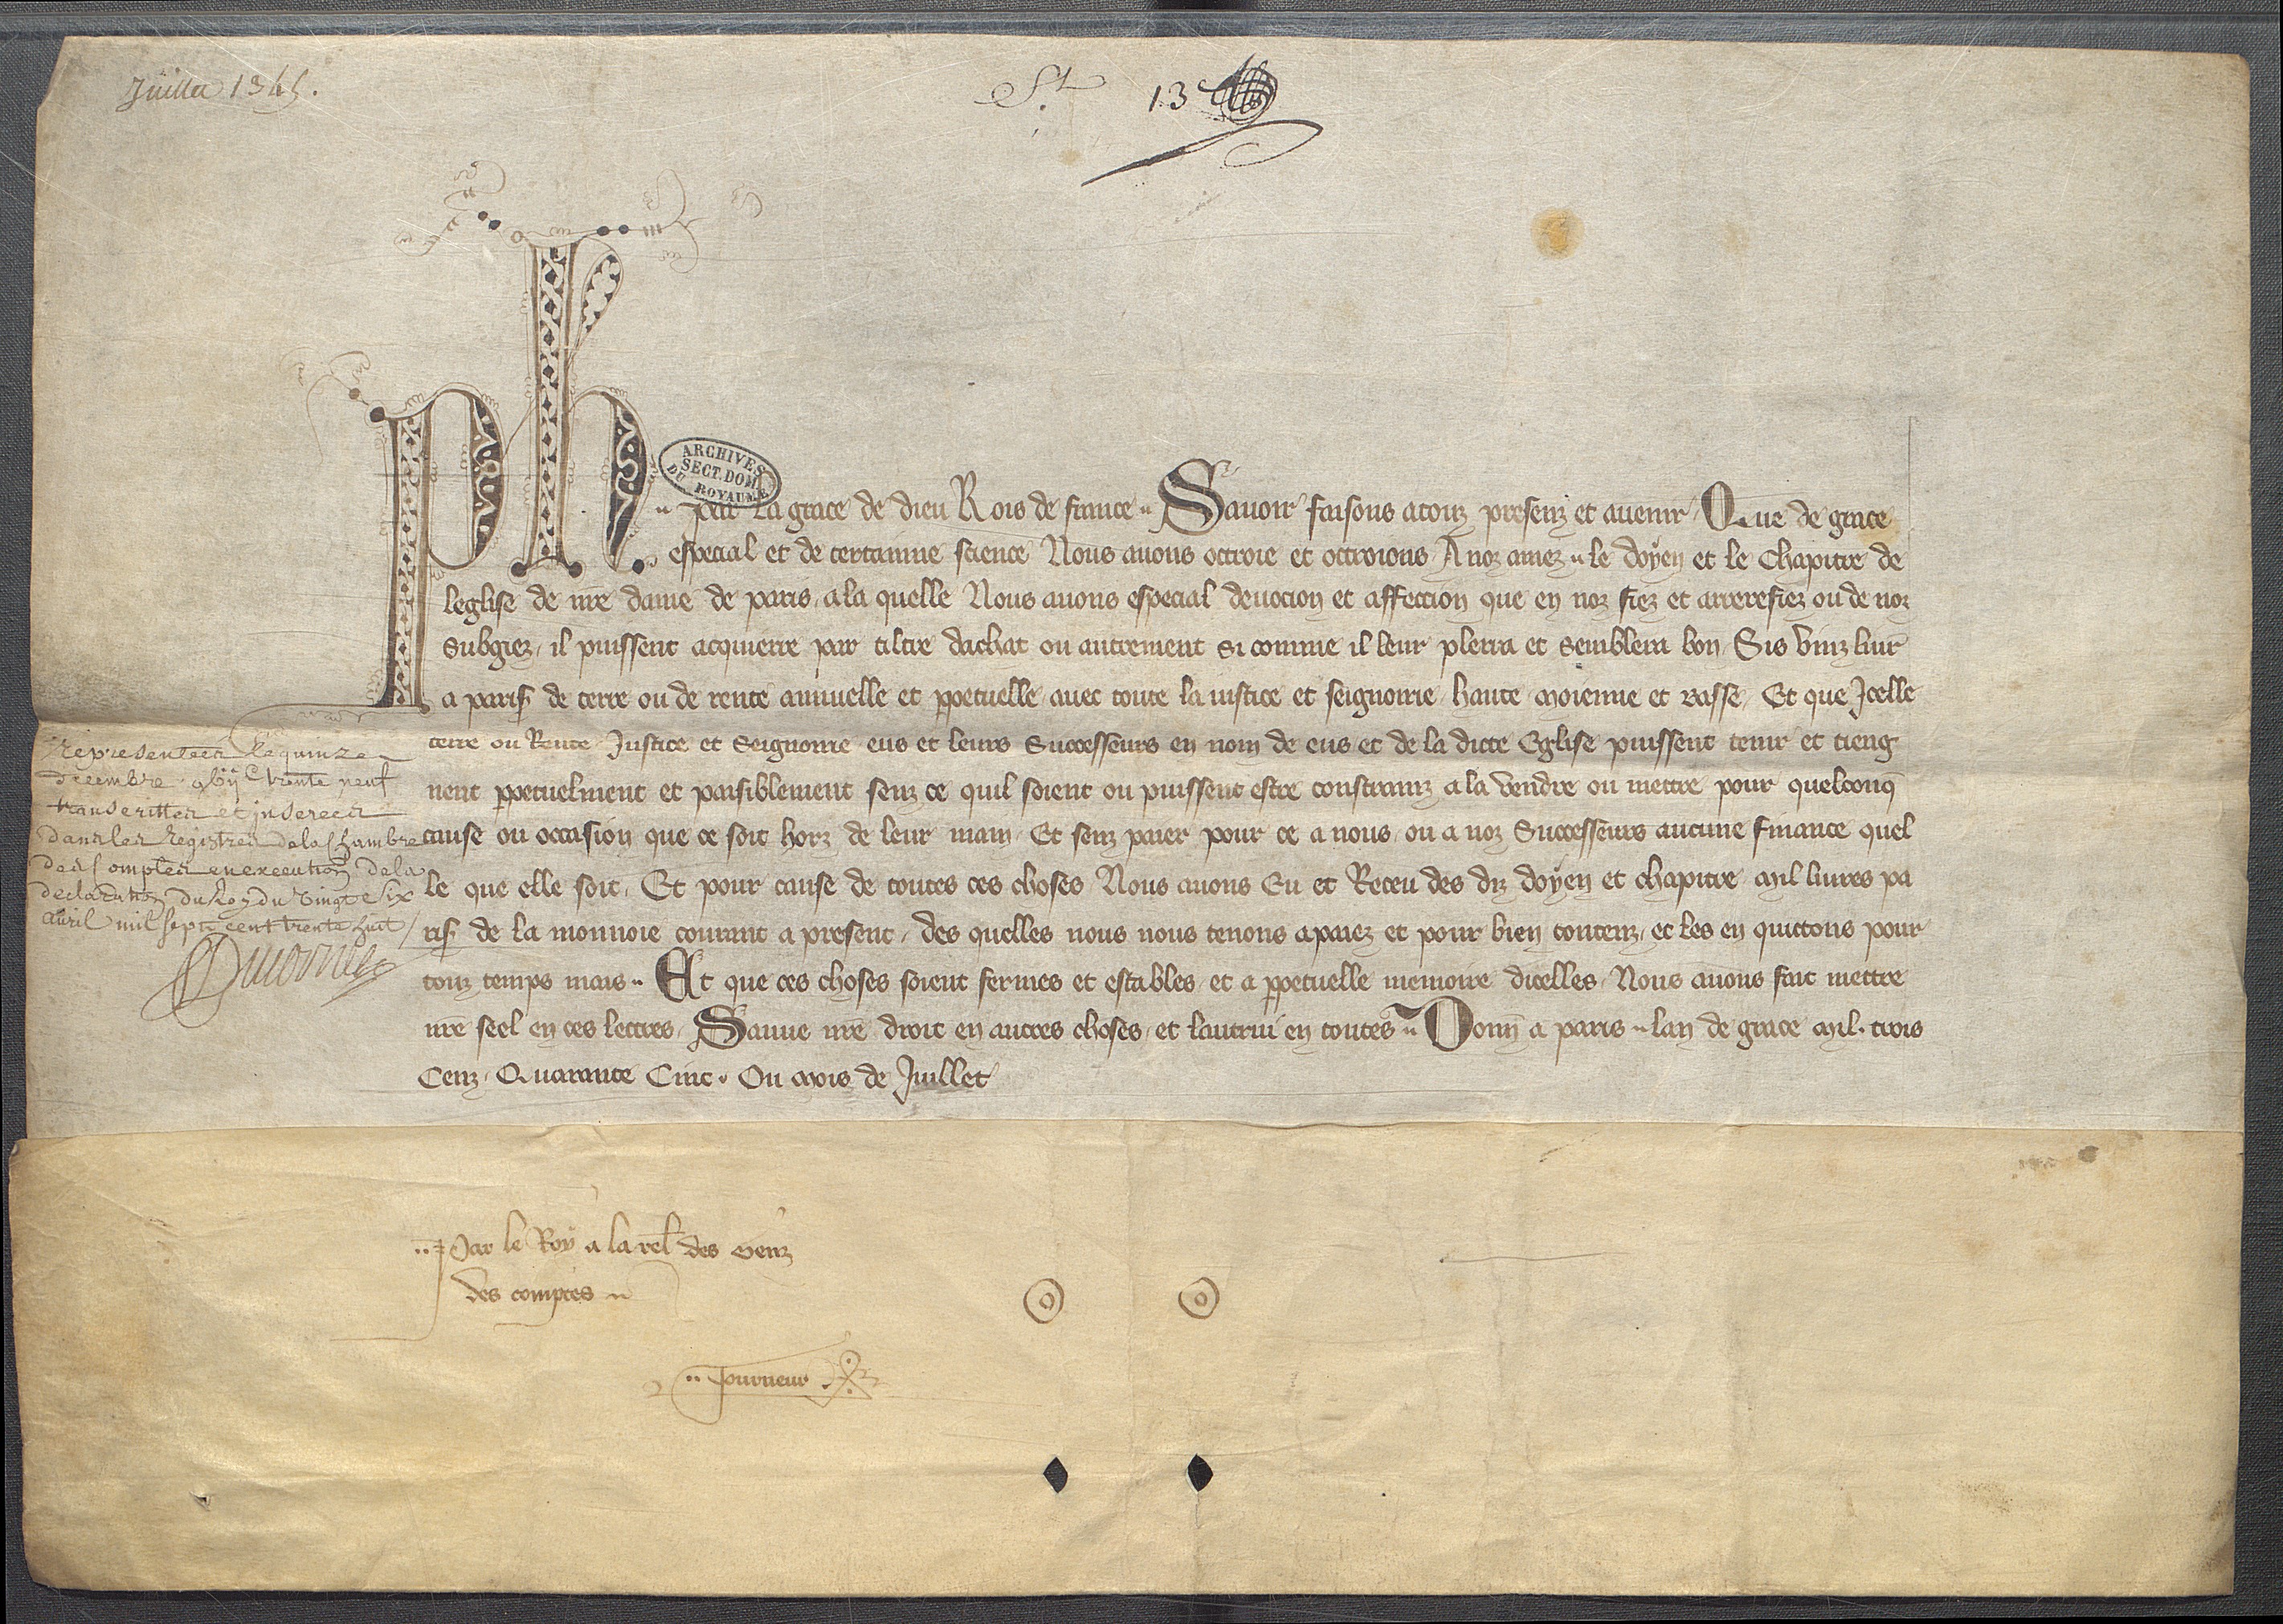 Juillet 1345.
St 13
ARCHIVES
SECT. DOM.
DU ROYAUME
Ph par la grace de dieu Rois de france Sauoir faisons a touz presenz et auenir Que de grace
especial et de certainne science Nous auons octroie et octroions A noz amez le doÿen et le Chapitre de
leglise de nr̄e dame de paris, a la quelle Nous auons especial deuocion et affeccion que en noz fiez et arrerefiez ou de noz
subgiez, il puissent acquierre par tiltre dachat ou autrement si comme il leur plerra et semblera bon, Sis vinz liur̄
a paris̄ de terre ou de rente annuelle et ꝑpetuelle auec toute la iustice et seignourie haute moienne et basse, Et que Jcelle
terre ou Rente Justice et Seignourie eus et leurs Successeurs en nom de eus et de la dicte Eglise puissent tenir et tieng
nent ꝑpetuelment et paisiblement senz ce quil soient ou puissent estre constrainz a la vendre ou mettre pour quelconq̄
cause ou occasion que ce soit horz de leur main, Et senz paier pour ce a nous, ou a noz Successeurs aucune finance quel
le que elle soit, Et pour cause de toutes ces choses Nous auons Eu et Receu des diz doÿen et chapitre mil liures pa
ris̄ de la monnoie courant a present, des quelles nous nous tenons apaiez et pour bien contenz, et les en quittons pour
touz temps mais Et que ces choses soient fermes et estables et a ꝑpetuelle memoire dicelles Nous auons fait mettre
nr̄e seel en ces lettres, Sauue nr̄e droit en autres choses, et lautrui en toutes Donn̄ a paris lan de grace mil. trois
Cenz, Quarante Cinc, Ou mois de Juillet
Representées le quinze
decembre xviiᶜ trente neuf
transcrittes et jnserees
dans les Registres de la Chambre
des Comptes en execution de la
declaration du Roy du vingt six
avril mil sept cent trente huit
Ducornet
Par le Roy a la rel̄ des genz
des comptes
Tourneur